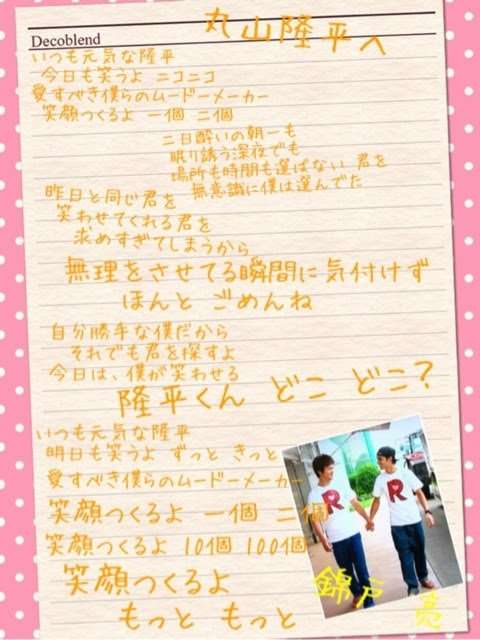 丸山隆平へ
Decoblend
いつも元気な隆平
今日も笑うよ ニコニコ
愛すべき僕らのムードーメーカー
笑顔つくるよ 一個 二個
二日酔いの朝一も
眠り誘う深夜でも
場所も時間も選ばない 君を
無意識に僕は選んでた
昨日と同じ君を
笑わせてくれる君を
求めすぎてしまうから
無理をさせてる瞬間に気付けず
ほんと ごめんね
自分勝手な僕だから
それでも君を探すよ
今日は、僕が笑わせる
隆平くん どこ どこ?
いつも元気な隆平
明日も笑うよ ずっと きっと
愛すべき僕らのムードーメーカー
笑顔つくるよ 一個 二個
笑顔つくるよ 10個 100個
笑顔つくるよ
もっと もっと
R R
錦戸 亮